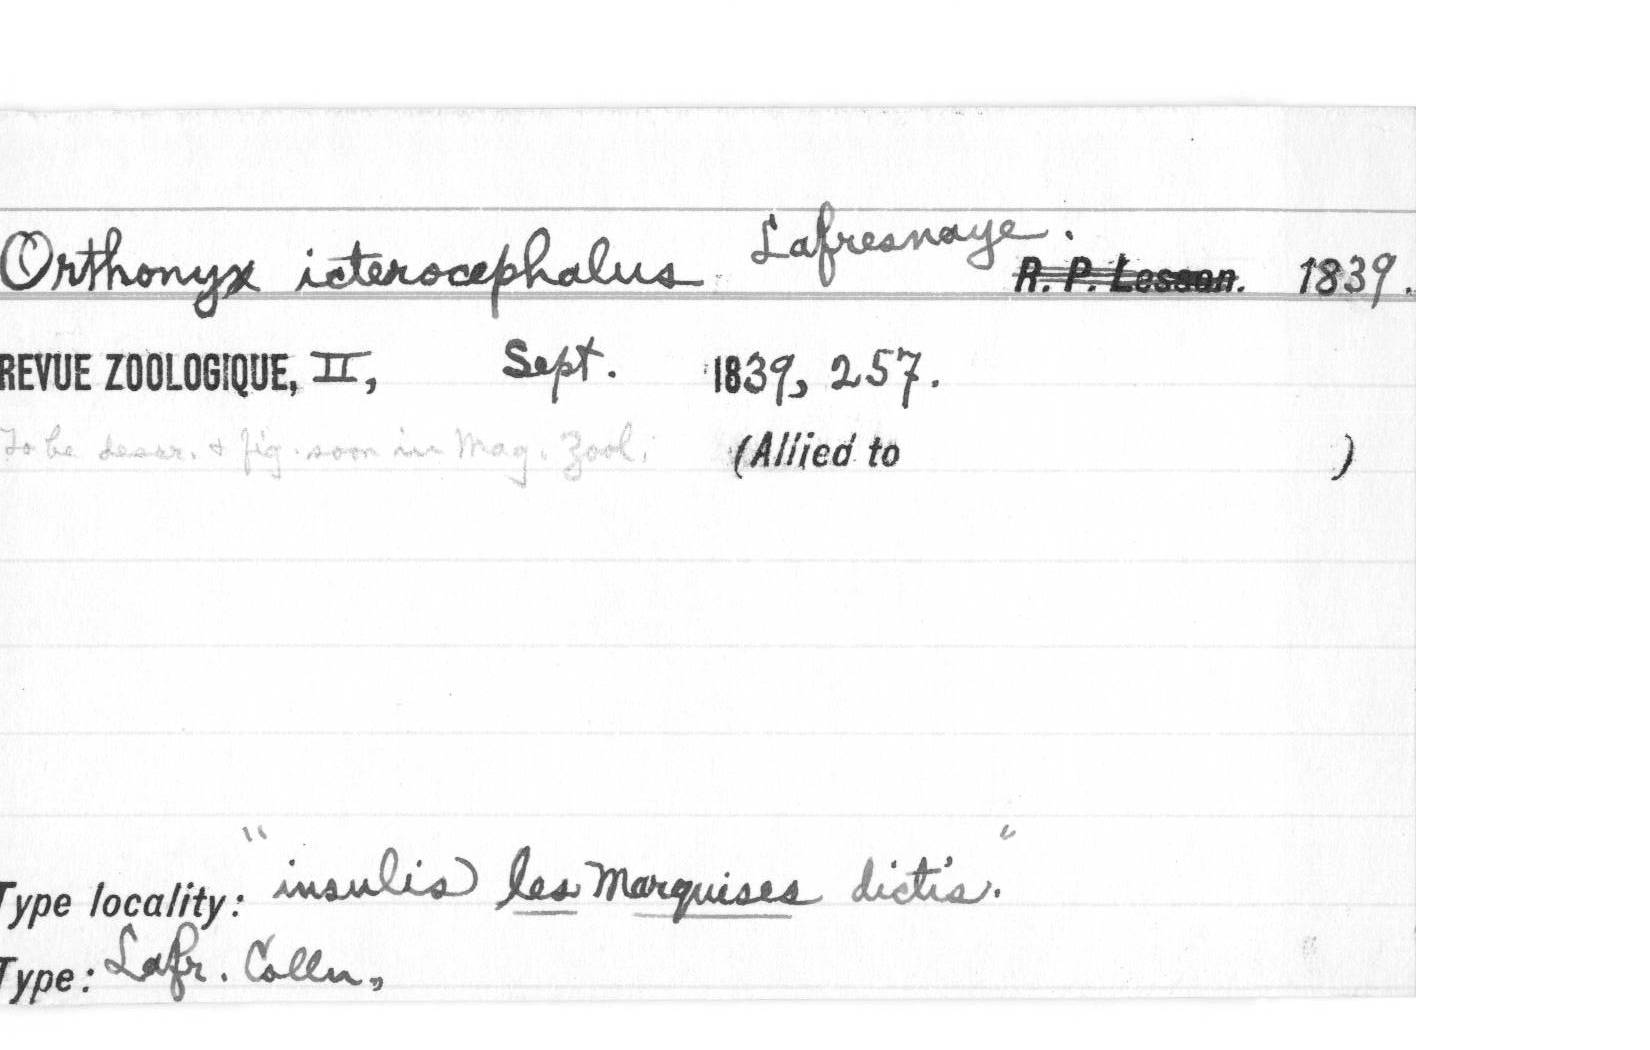 Orthonyx icterocephalus Lafresnaye. R. P. Lesson. 1839.
REVUE ZOOLOGIQUE, II, Sept. 1839, 257.
To be descr. & fig. soon in Mag. Zool. (Allied to )
Type locality: "insulis les Marquises dictis."
Type: Lafr. Colln,